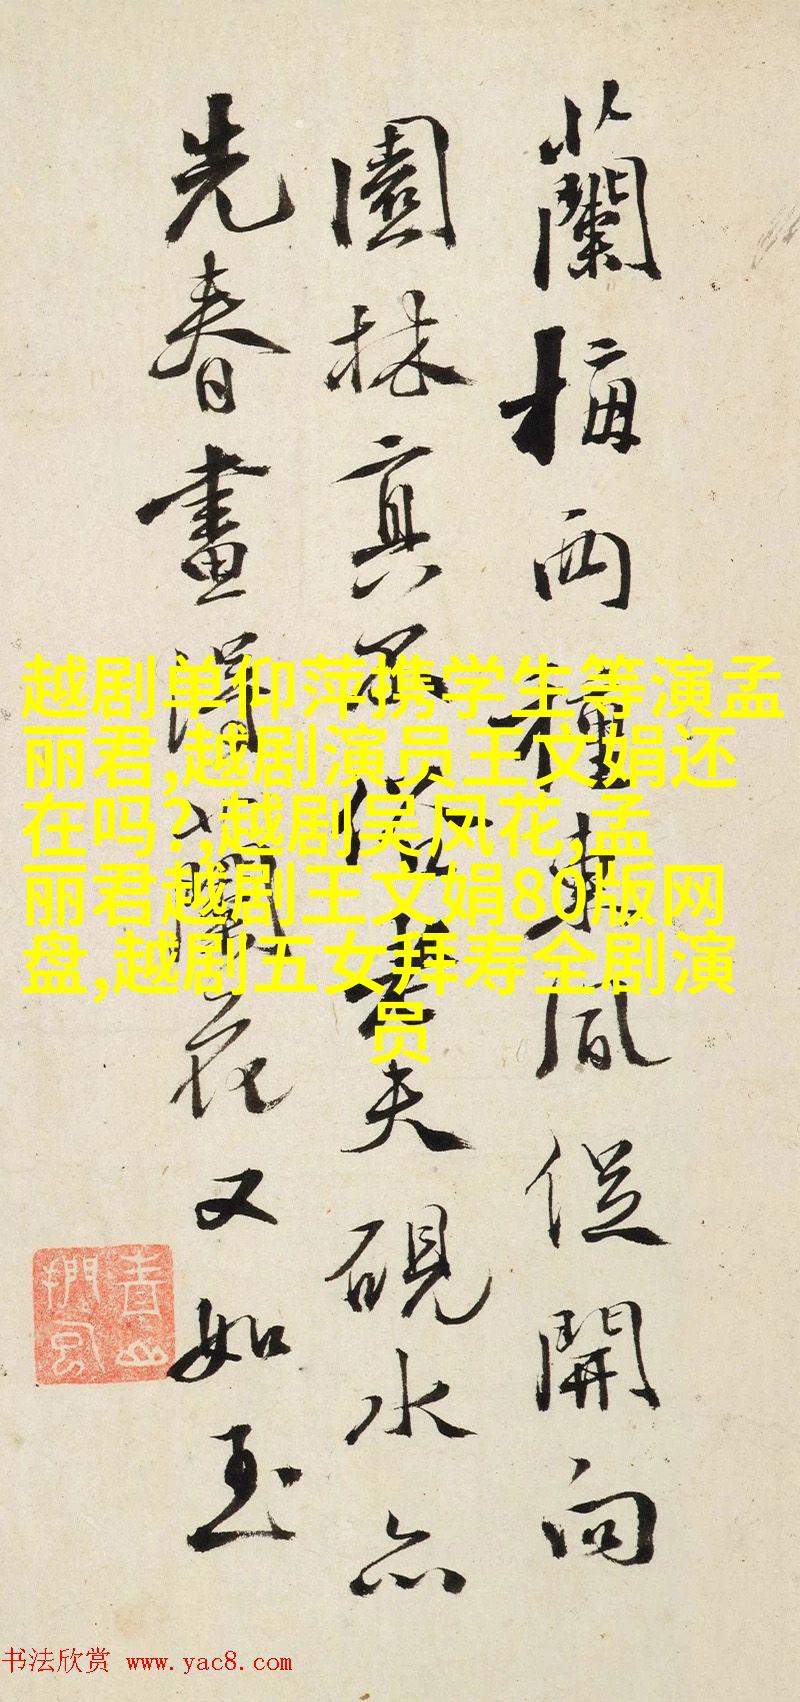 蘭梅兩種東風從開向
園林真不俗老夫硯水亦
先春畫得蘭花又如玉
越剧单仰萍携学生等演孟
丽君,越剧演员王文娟还
在吗?,越剧吴凤花,孟
丽君越剧王文娟80版网
盘,越剧五女拜寿全剧演
员
书法欣赏 www.yac8.com